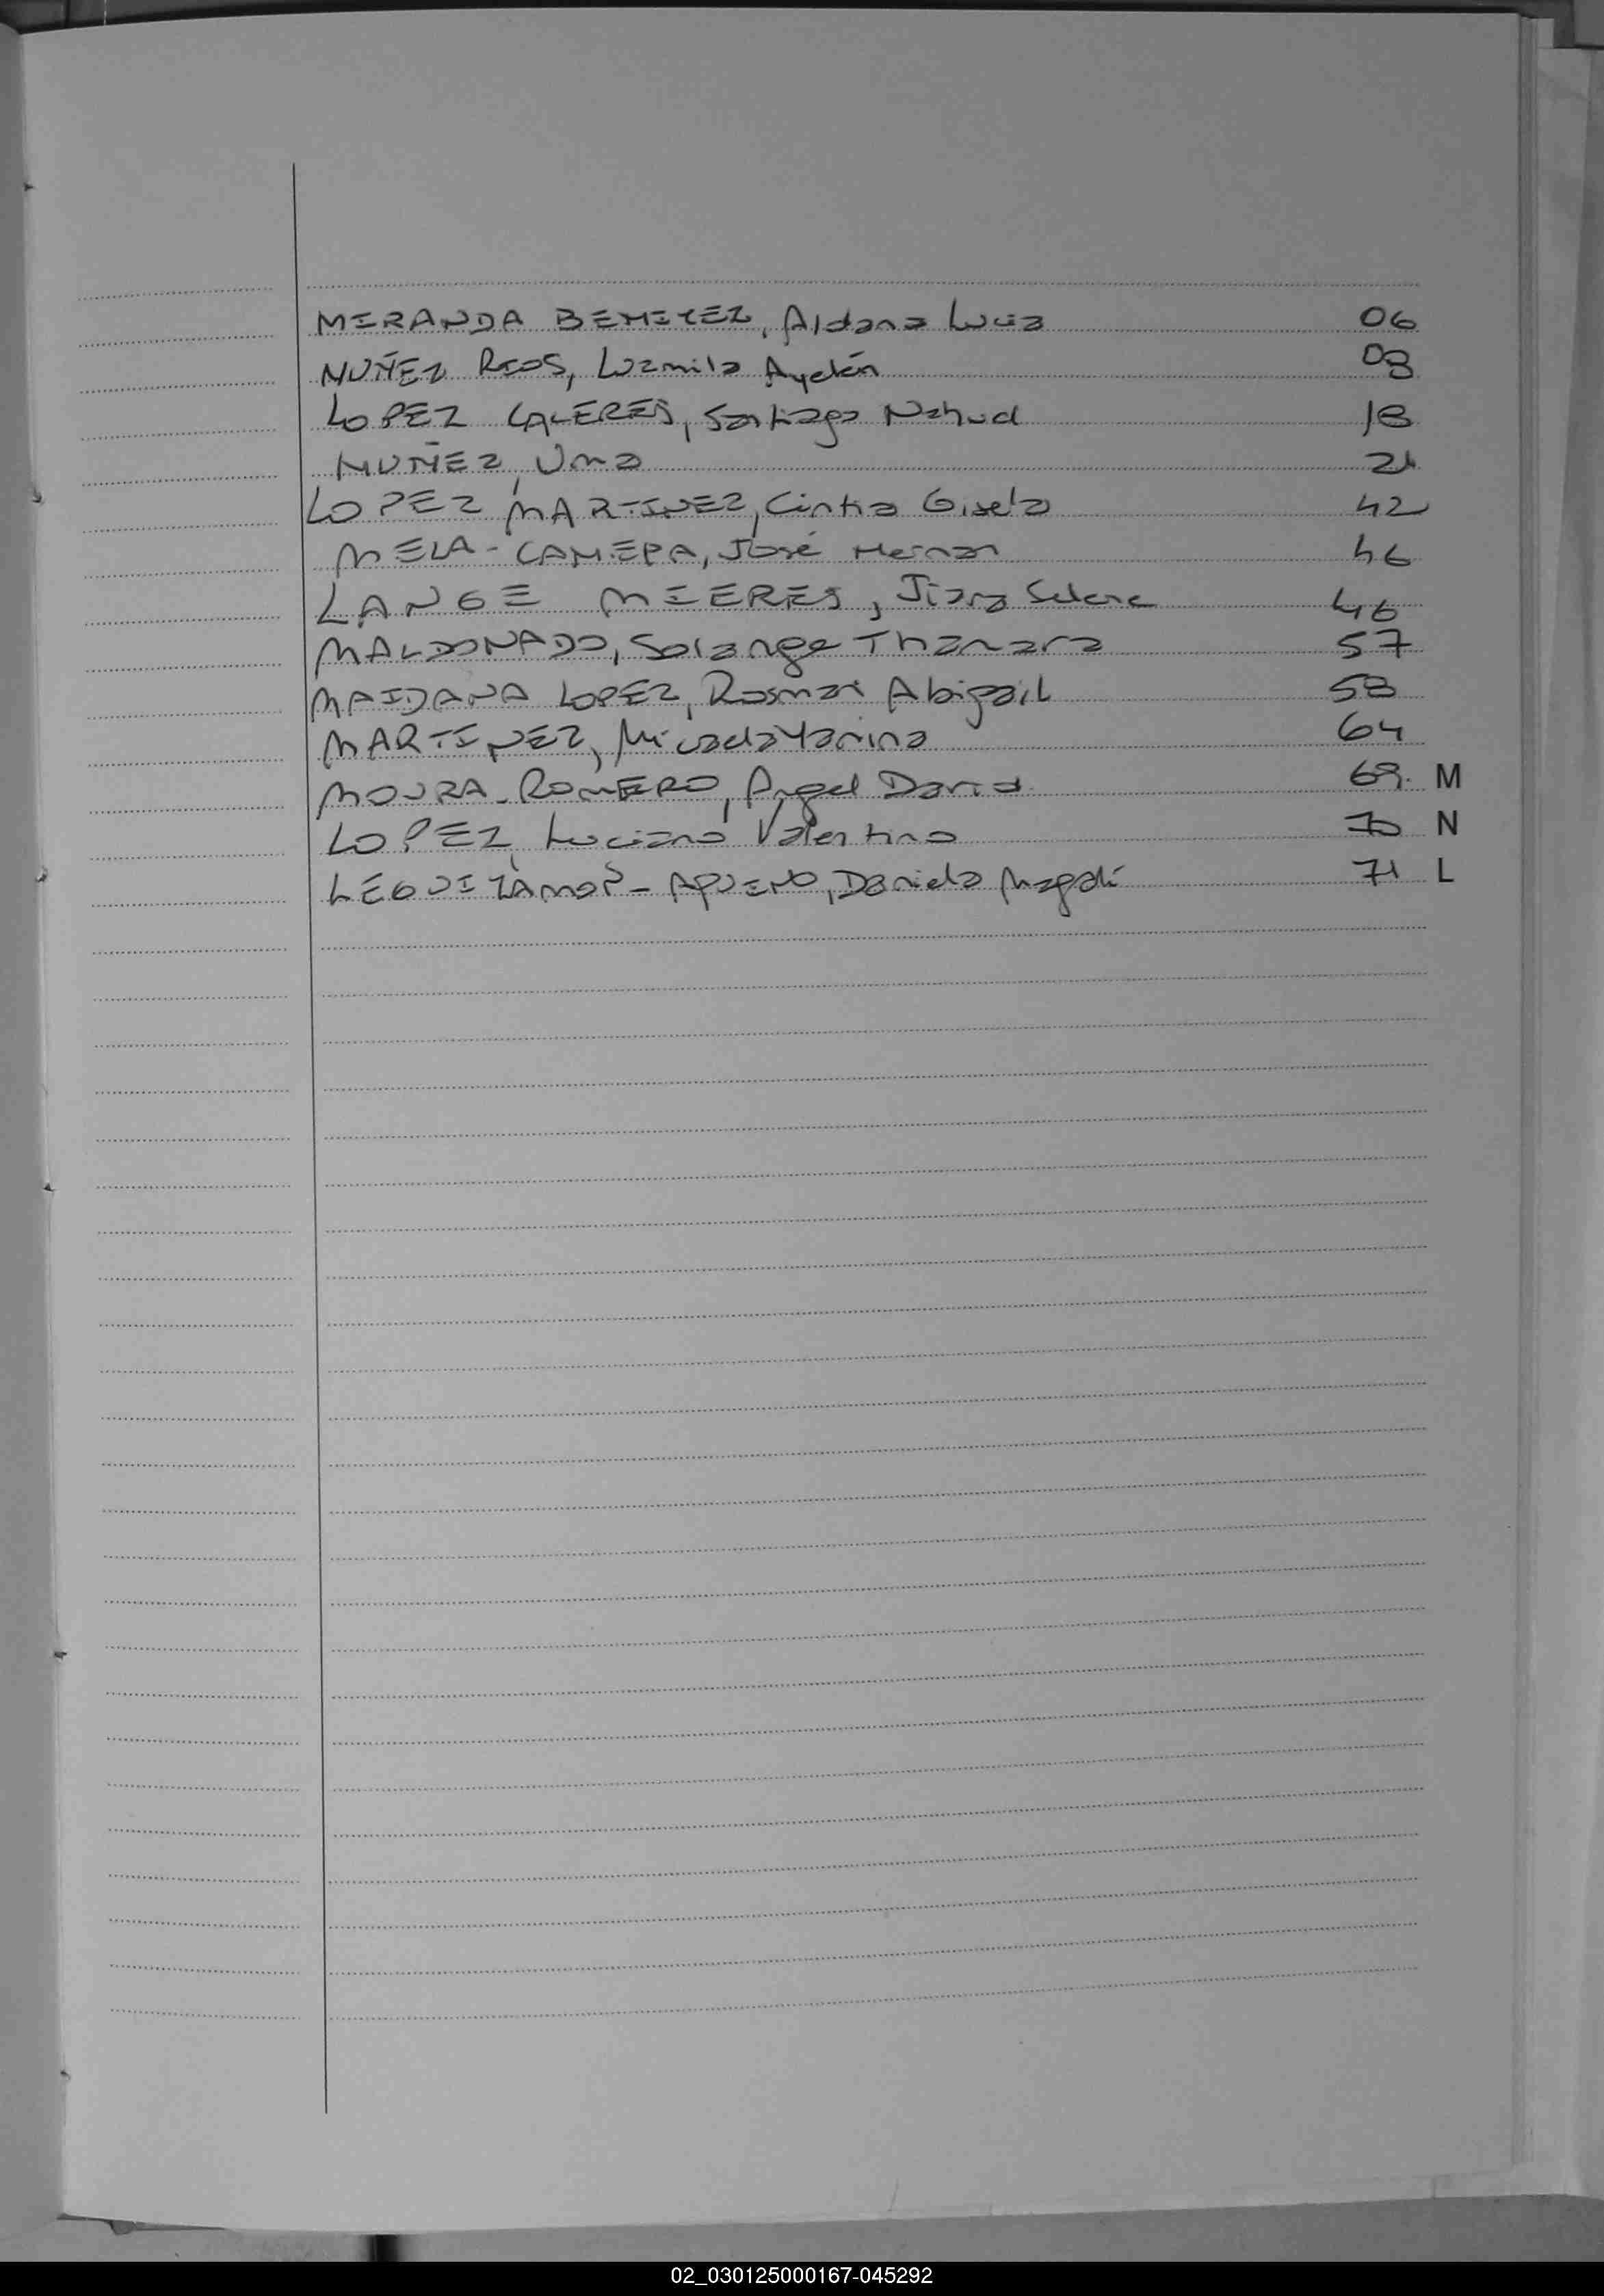 MIRANDA BENITEZ, Aldana Lucia 06
NUÑEZ RIOS, Luzmila Ayelén 08
LOPEZ CACERES, Santiago Nahuel 18
NUÑEZ, Uma 21
LOPEZ MARTINEZ, Cintia Gisela 42
MELA-CAMEPA, José Hernan 46
LANGE MIERES, Jiara Selene 46
MALDONADO, Solange Thamara 57
MAIDANA LOPEZ, Rosmari Abigail 58
MARTINEZ, Micaela Yanina 64
MOURA-ROMERO, Angel David 69. M
LOPEZ, Luciano Valentino 70 N
LEGUIZAMON - AQUINO, Daniela Magalí 71 L
02_030125000167-045292